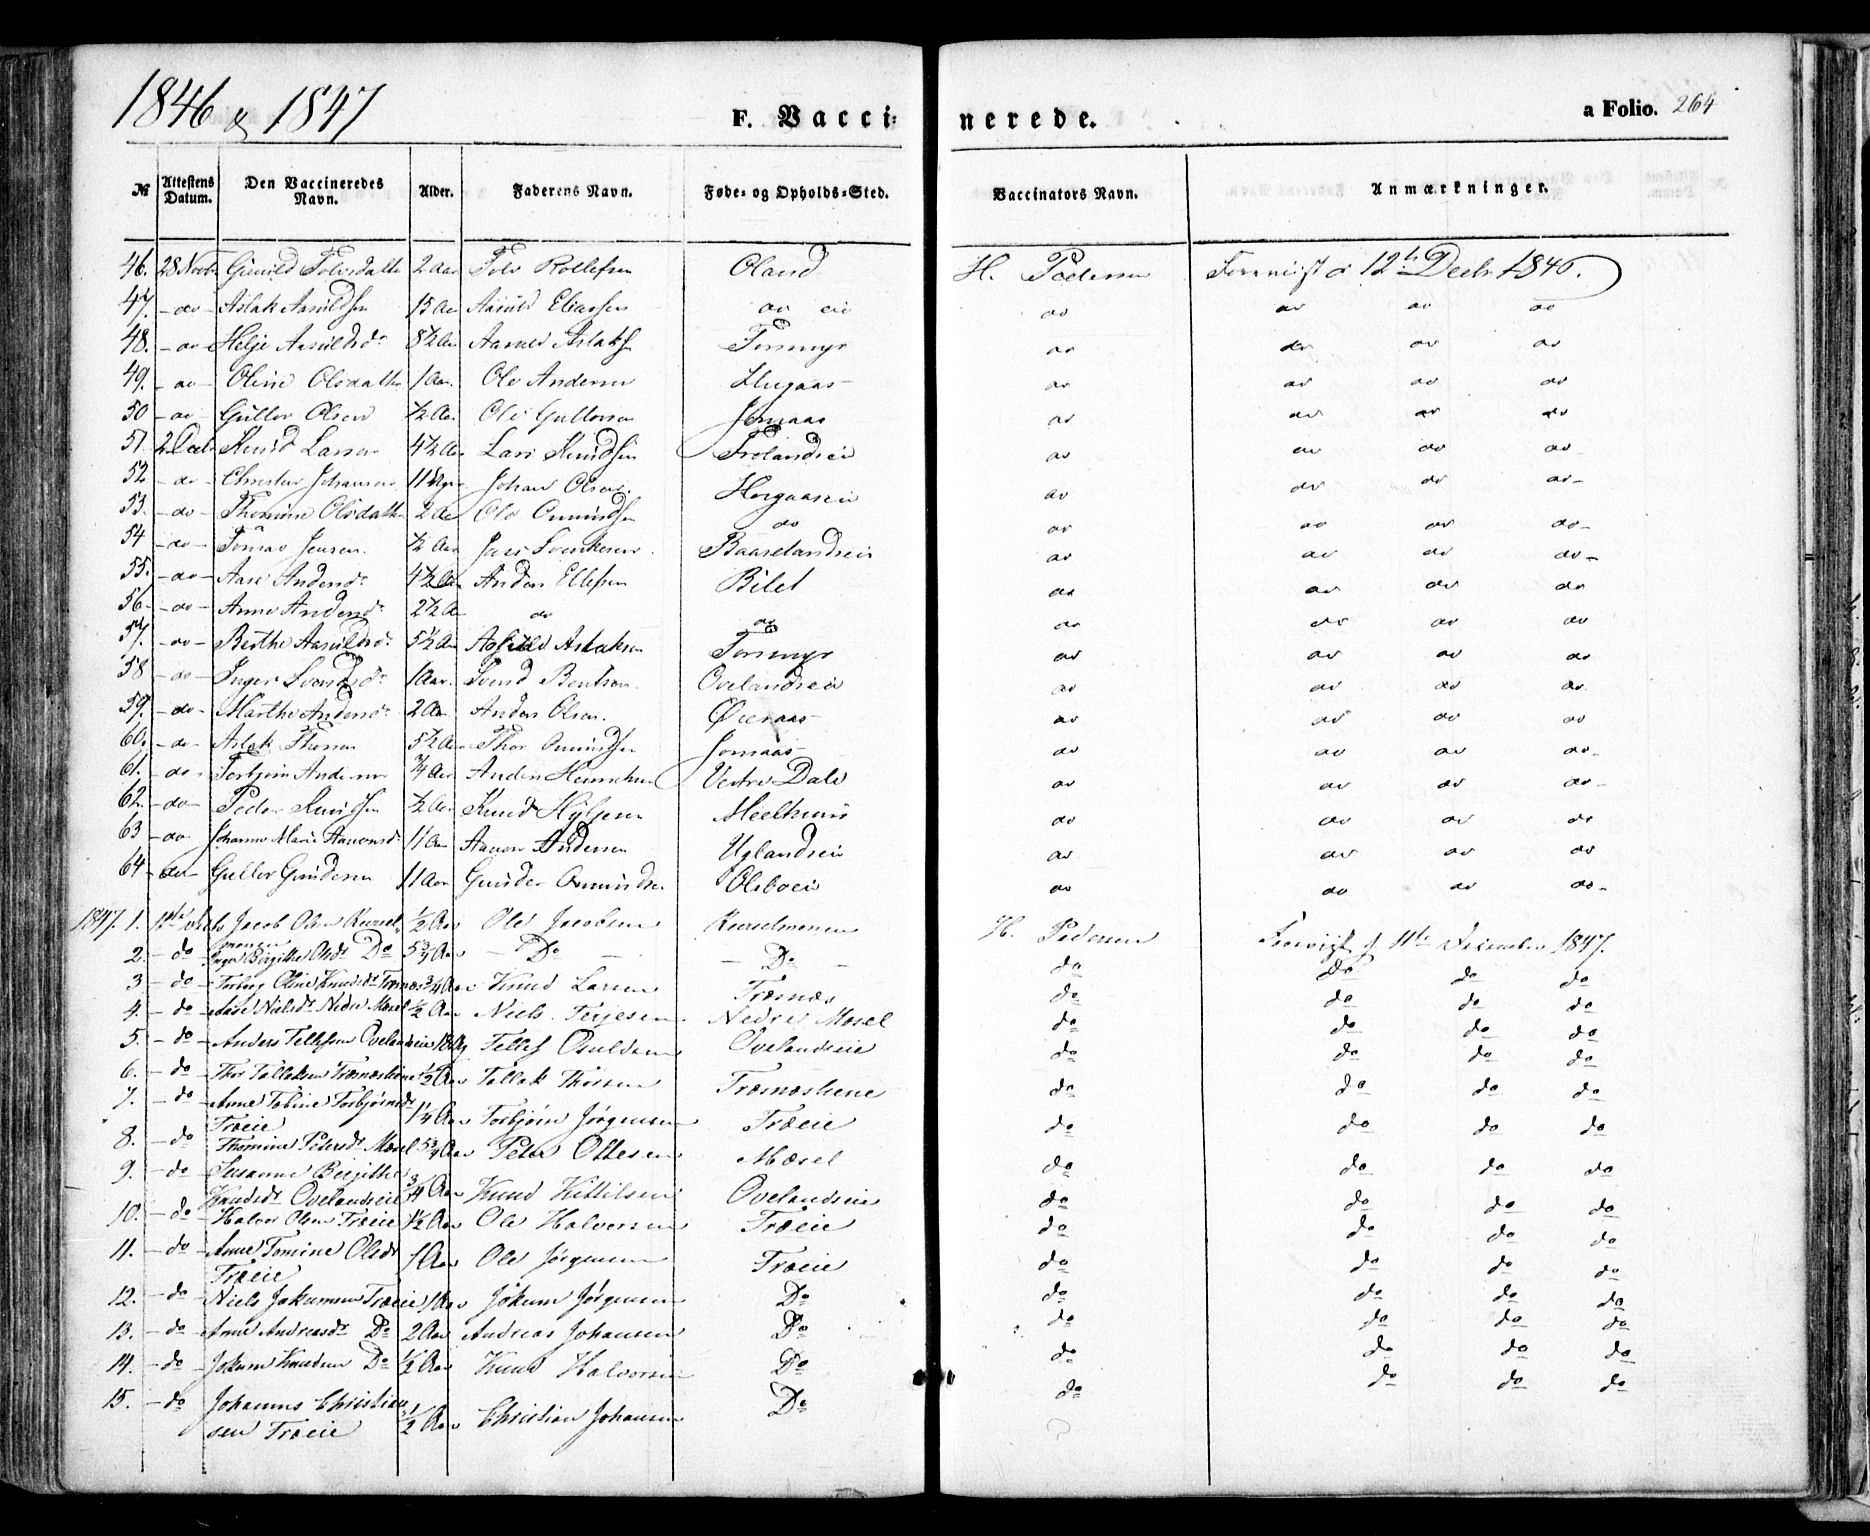 1846 & 1847
F. Vaccinerede.
a Folio. 264
№ Attestens Datum. Den Vaccineredes Navn. Alder. Faderens Navn. Føde- og Opholds-Sted. Vaccinators Navn. Anmærkninger.
46. 28 Novb Gunild Tolvsdatter 2 Aar Tolv Rollefsen Oland H. Pedersen Foreviist d 12te Decbr 1846.
47. - do Aslak Aasuldsen 13 Aar Aasuld Eliassen do eie do do do do
48. - do Helje Aasulds dr 8½ Aar Aasuld Aslaksen Torsmyr do do do do
49. - do - Oline Olsdatter 1 Aar. Ole Andersen do do do do
50 - do - Gullov Olsen ½ Aar Ole Gullovsen Jomaas do do do do
51. 2 Decbr Knud Larsen 4½ Aar Lars Knudsen Frolandseie do do do do
52 - do - Christen Johansen 11 Johan Olsen. do do do do
53. - do - Thomine Olsdatter 2 Aar Ole Omundsen do do do do do
54 - do - Tomas Jensen. ½ Aar Jens Svenkesen Baaselandseie do do do do
55. - do - Aase Anders dr 4½ Aar Anders Ellefsen Bilet do do do do
56. - do - Anne Anders dr 2½ Aar do do do do do do
57. - do - Berthe Aasulds dr 5½ Aar Aasuld Aslaksen Torsmyr do do do do
58 - do - Inger Svends dr 1 Aar. Svend Bentsen Ovelandseie do do do do
59. - do - Marthe Anders dr 2 Aar Anders Olsen. do do do do
60. - do - Aslak Thorsen 5½ Aar Thor Omundsen Jomaas do do do do
61. - do - Torbjørn Andersen ¾ Aar Anders Vestre Dale do do do do
62. - do - Peder Knudsen ½ Aar Knud Hyljesen do do do do
63 - do Johanne Marie Aanons dr 11 Aar Aanon Andersen Uglandseie do do do do
64 - do - Gullov Gundersen 11 Aar Gunder Omundsen Olsboeie do do do do
1847. 1. Jacob Olsen ½ Aar Ole Jacobsen H. Pedersen Foreviist d. 11te December 1847.
2. - do - Inger Birgitte Olsdr Do 5¾ Aar - Do - - Do - do do do do
3 - do - Torborg Oline Knudsdr Trænæs ¾ Aar Knud Larsen Trænæs do do do do
4. - do - Aase Nielsdr Nedre Mæsel ½ Aar Niels Terjesen Nedre Mæsel do do do do
5. - do - Anders Tellefsen Ovelandseie Tellef Osuldsen Ovelandseie do do do do
6. - do - Thor Tallaksen 1½ Aar Tallak Thorsen do do do do
7. - do - Anne Tobine Torbjørnsdr
Træeie 1¼ Aar Torbjørn Jørgensen Træeie do do do do
8. - do - Thomine Pedersdr Mæsel 5¾ Aar Peder Ottesen Mæsel do do do do
9. - do - Susanne Birgitte
Knudsdr Ovelandseie ¾ Aar Knud Kittilsen Ovelandseie do do do do
10. - do - Halvor Olsen Træeie 1½ Aar Ole Halvorsen Træeie do do do do
11. - do - Anne Tomine Olsdr
Træeie 1 Aar Ole Jørgensen Træeie do do do do
12. - do - Niels Jokumsen Træeie 1 Aar Jokum Jørgensen Do do do do do
13. - do - Anne Andreasdr Do 2 Aar Andreas Johansen Do do do do do
14. - do - Jokum Knudsen Do ½ Aar Knud Halvorsen Do do do do do
15. - do Johannes Christian
sen Træeie ½ Aar Christian Johansen Do do do do do